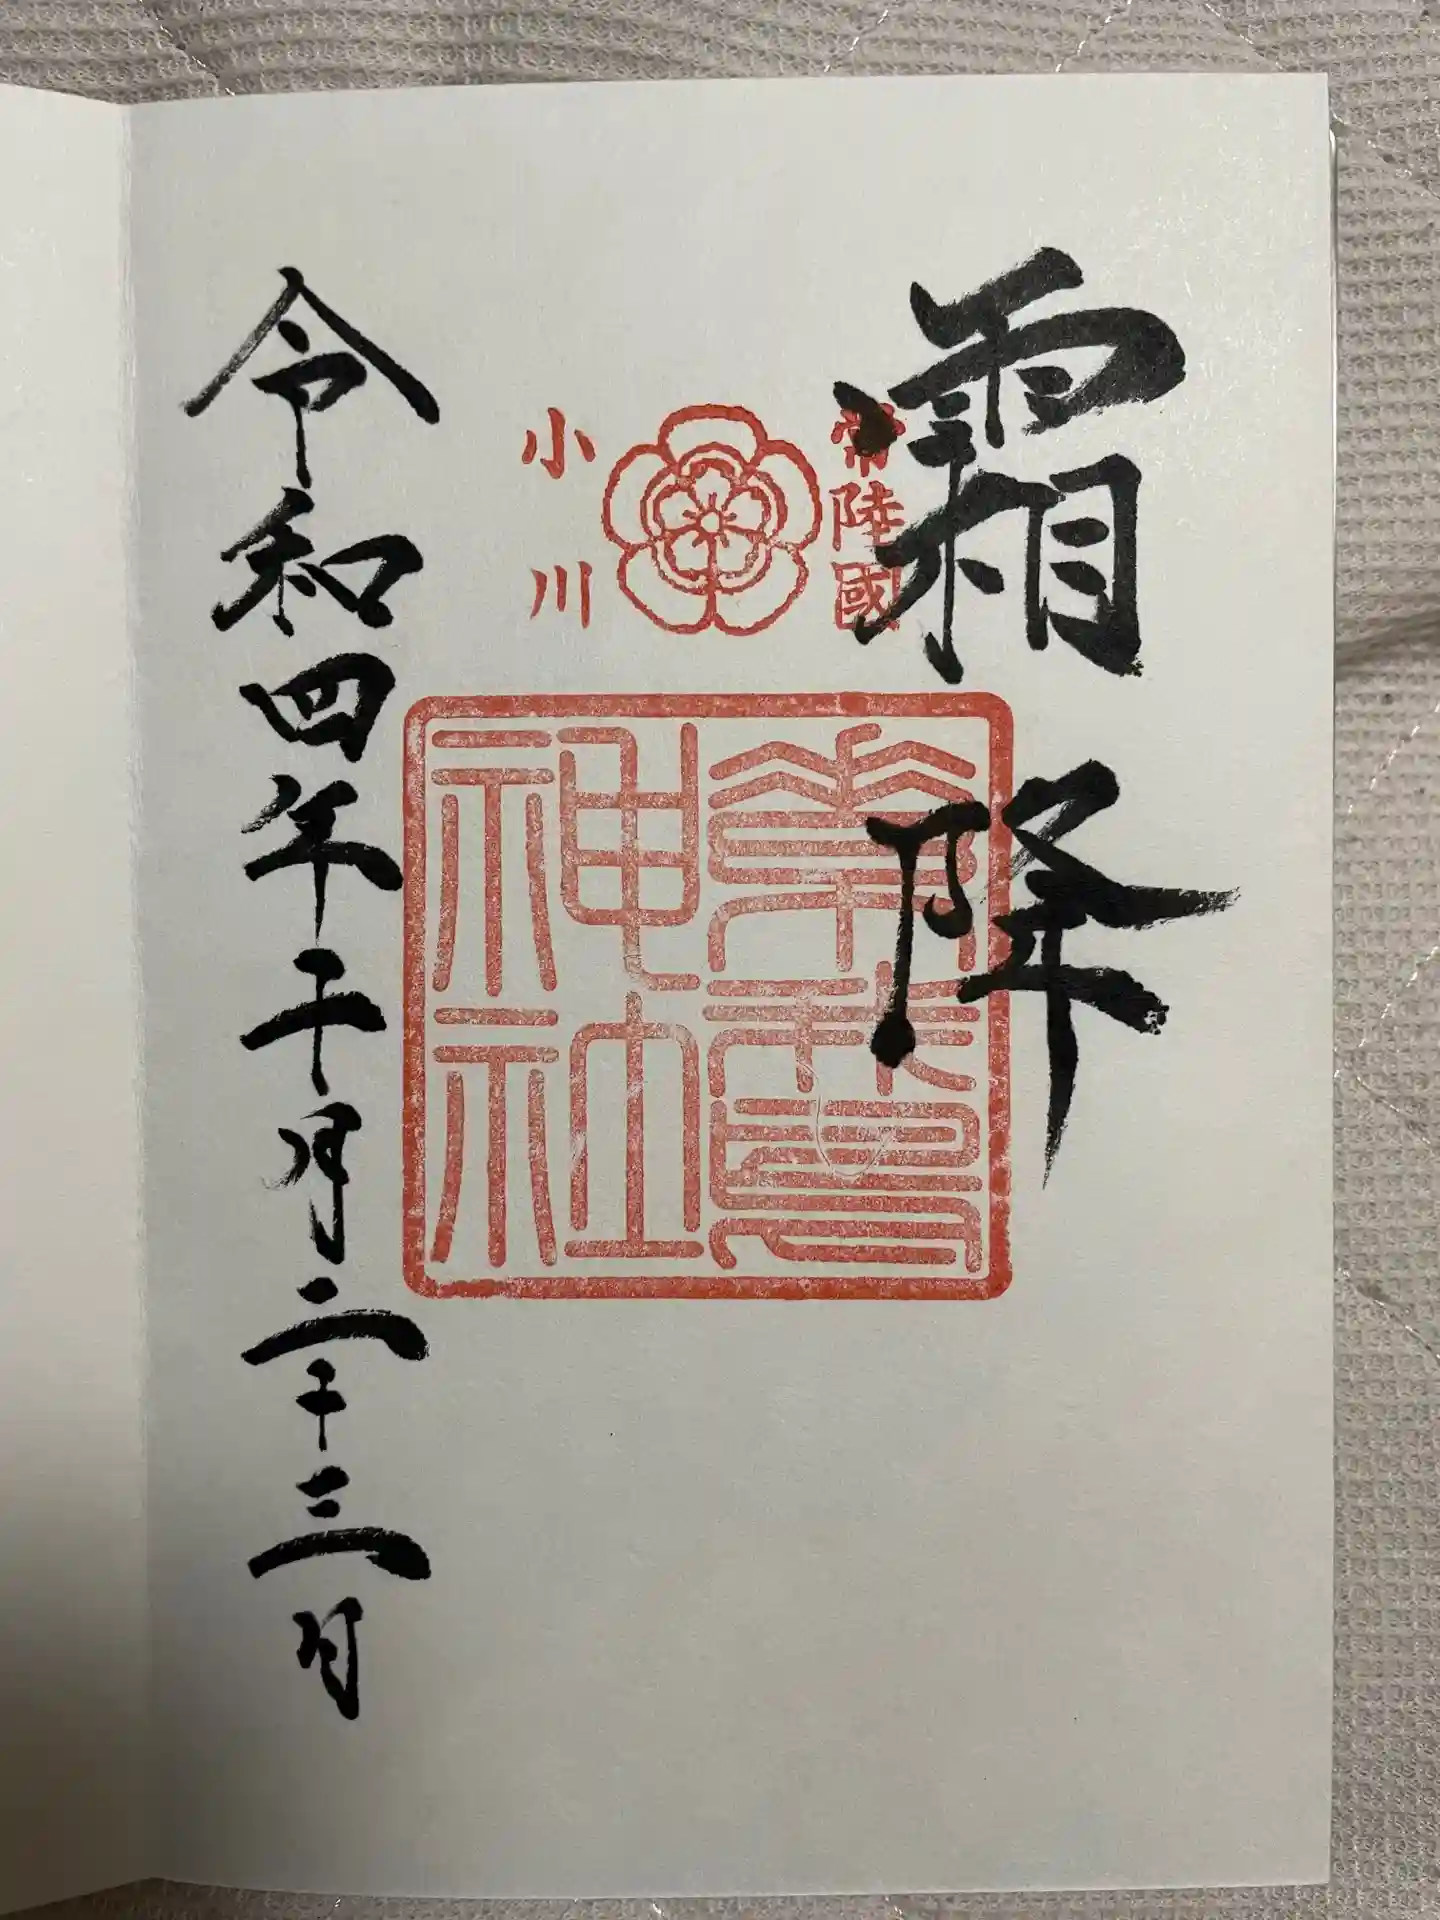 霜降
常陸國
小川
素鵞神社
令和四年十月二十三日